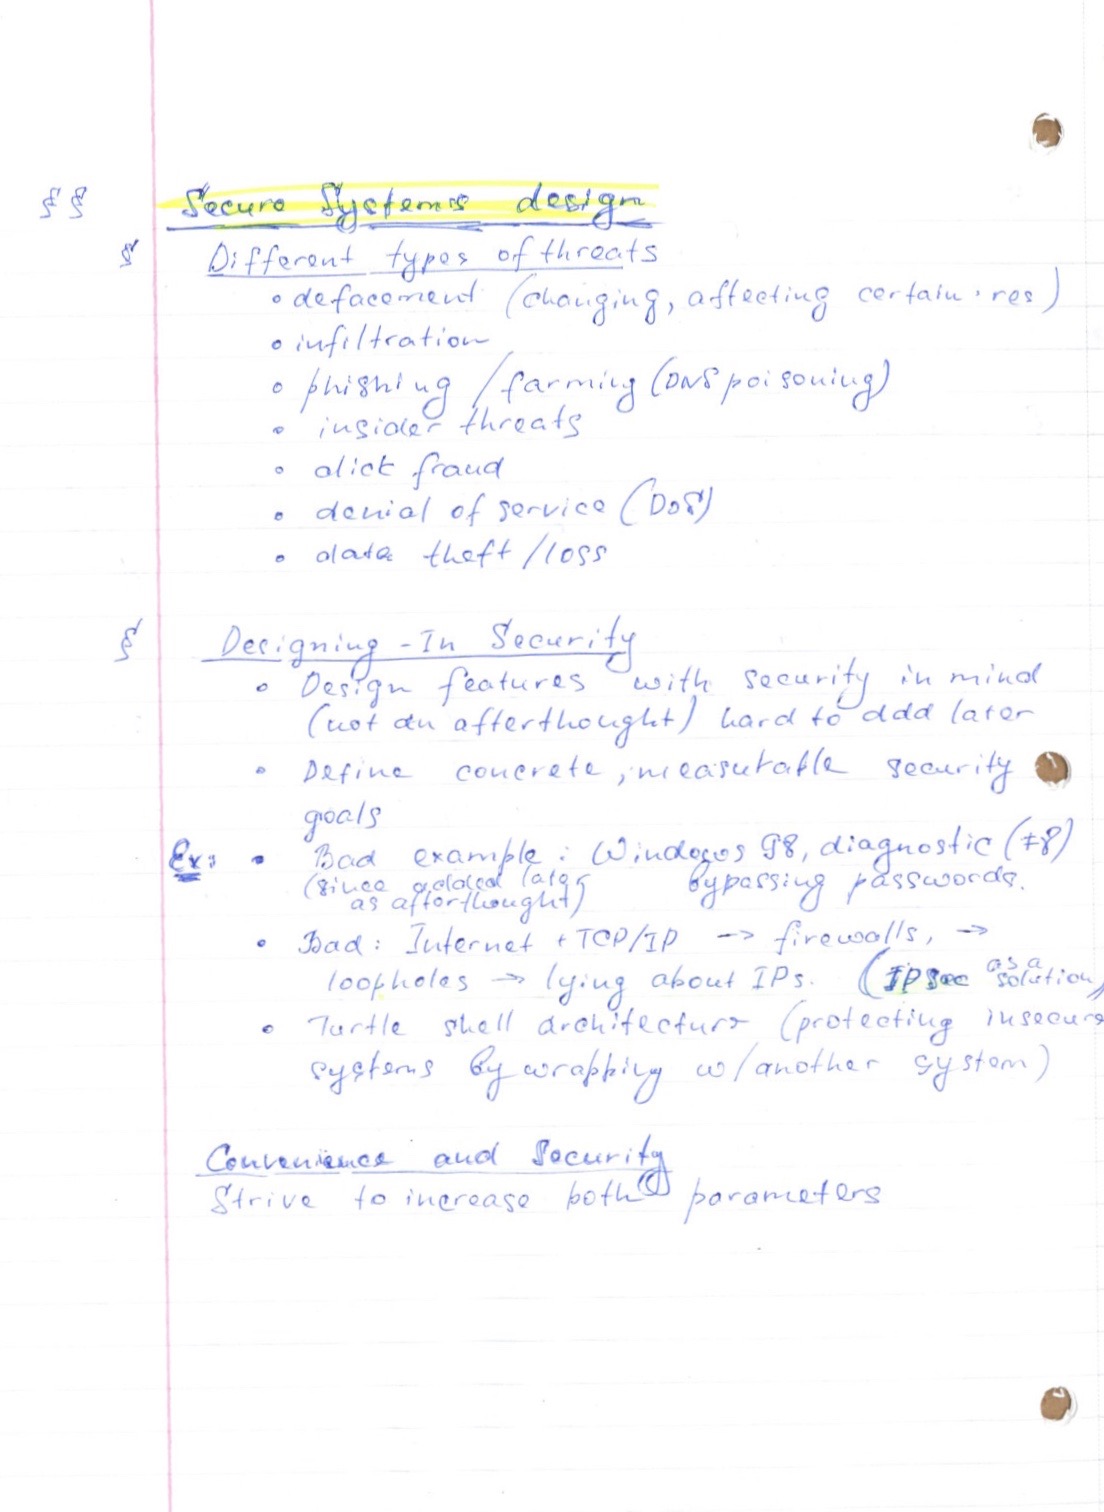 §§ Secure Systems design
§ Different types of threats
• defacement (changing, affecting certain res)
• infiltration
• phishing / farming (DNS poisoning)
• insider threats
• click fraud
• denial of service (DoS)
• data theft / loss
§ Designing-In Security
• Design features with security in mind
(not an afterthought) hard to add later
• Define concrete, measurable security
goals
Ex: • Bad example: Windows 98, diagnostic (F8)
(since added later bypassing passwords.
as afterthought)
• Bad: Internet + TCP/IP → firewalls, →
loopholes → lying about IPs. (IPSec as a solution)
• Turtle shell architecture (protecting insecure
systems by wrapping w/another system)
Convenience and Security
Strive to increase both parameters